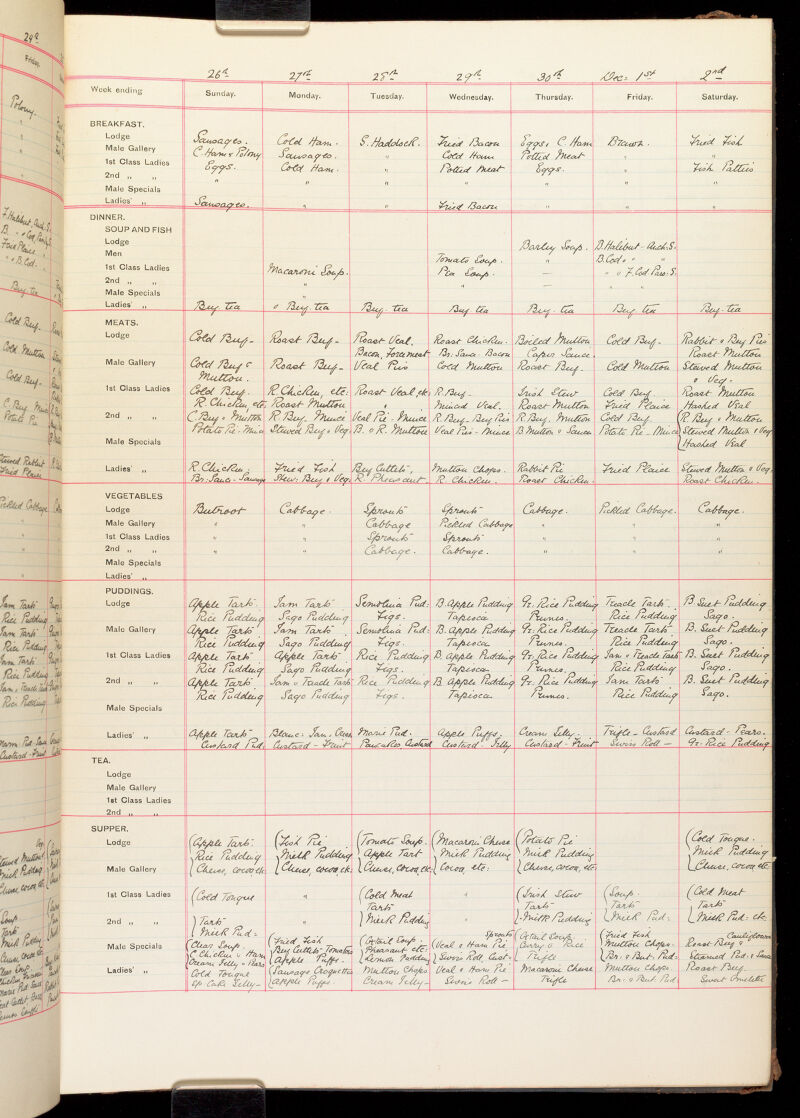 29th
Friday.
Polony.
Cold BUf.
Cold Mutton
Cold BUf.
Potato Pie
Pickled Cabbage
Jam Tarts
Rice Pudding
Jam Tarts
Rice Pudding
Rice Pudding
26th 27th 28th 29th 30th Dec: 1st 2nd
Week ending Sunday. Monday. Tuesday. Wednesday. Thursday. Friday. Saturday.
BREAKFAST.
Lodge Sausages. Cold Ham. S. Haddock. Fried Bacon Eggs, C. Ham Brawn. Fried Fish
Male Gallery C. Ham & Polony Sausages. " Cold Ham Potted Meat " "
1st Class Ladies Eggs. Cold Ham. " Potted Meat Eggs. " Fish Patties
2nd " " " " " " " " "
Male Specials
Ladies' " Sausages. " " Fried Bacon " " "
DINNER.
SOUP AND FISH
Lodge Barley Soup. B. Halibut - Anch: S.
Men Tomato Soup. " B. Cod " "
1st Class Ladies Macaroni Soup. Pea Soup. — " " F. Cod Pars: S.
2nd " " " " — " "
Male Specials
Ladies' " Beef tea " Beef tea Beef tea Beef tea Beef tea Beef tea Beef tea
MEATS.
Lodge Cold Beef. Roast Beef. Roast Veal. Roast Chicken. Boiled Mutton Cold Beef. Rabbit & Beef Pies
Bacon, Forcemeat Br: Sauce. Bacon Caper Sauce. Roast Mutton
Male Gallery Cold Beef & Roast Beef. Veal Pies Cold Mutton Roast Beef. Cold Mutton Stewed Mutton
Mutton. & Veg.
1st Class Ladies Cold Beef. R. Chicken, etc: Roast Veal etc: R. Beef. Irish Stew Cold Beef Roast Mutton
R. Chicken, etc. Roast Mutton " Minced Veal. Roast Mutton Fried Plaice Hashed Veal
2nd " " C. Beef & Mutton R. Beef. Mince Veal Pie. Mince R. Beef. Beef Pies R. Beef. Mutton Cold Beef. R. Beef & Mutton
Potato Pie. Mince Stewed Beef & Veg. B. & R. Mutton Veal Pies. Mince B. Mutton & Sauce Potato Pie. Mince Stewed Mutton & Veg
Male Specials Hashed Veal
Ladies' " R. Chicken. Fried Fish Beef Cutlets. Mutton Chops. Rabbit Pie Fried Plaice Stewed Mutton & Veg.
Br: Sauce. Sausage Stew: Beef & Veg. R. Pheasant. R. Chicken. Roast Chicken. Roast Chicken.
VEGETABLES
Lodge Beetroot Cabbage. Sprouts Sprouts Cabbage. Pickled Cabbage. Cabbage.
Male Gallery " " Cabbage Pickled Cabbage " " "
1st Class Ladies " " Sprouts Sprouts " " "
2nd " " " " Cabbage. Cabbage. " " "
Male Specials
Ladies' "
PUDDINGS.
Lodge Apple Tarts. Jam Tarts Semolina Pud: B. Apple Pudding Gr: Rice Pudding Treacle Tarts B. Suet Pudding
Rice Pudding Sago Pudding Figs. Tapioca Prunes. Rice Pudding Sago.
Male Gallery Apple Tarts Jam Tarts Semolina Pud: B. Apple Pudding Gr: Rice Pudding Treacle Tarts B. Suet Pudding
Rice Pudding Sago Pudding Figs. Tapioca Prunes. Rice Pudding Sago.
1st Class Ladies Apple Tarts Apple Tarts Rice Pudding B. Apple Pudding Gr: Rice Pudding Jam & Treacle Tarts B. Suet Pudding
Rice Pudding Sago Pudding Figs. Tapioca Prunes. Rice Pudding Sago.
2nd " " Apple Tarts Jam & Treacle Tarts Rice Pudding B. Apple Pudding Gr: Rice Pudding Jam Tarts B. Suet Pudding
Rice Pudding Sago Pudding Figs. Tapioca Prunes. Rice Pudding Sago.
Male Specials
Ladies' " Apple Tarts Blanc: Jam. Marie Pud. Apple Puffs. Cream Jelly. Trifle - Custard Custard - Pears.
Custard Pud. Custard - Fruit Pancakes, Custard Custard Jelly Custard - Fruit Swiss Roll — Gr: Rice Pudding
TEA.
Lodge
Male Gallery
1st Class Ladies
2nd " "
SUPPER.
Lodge Apple Tarts. Fish Pie Tomato Soup. Macaroni Cheese Potato Pie Cold Tongue.
Rice Pudding Milk Pudding Apple Tart Milk Pudding Milk Pudding Milk Pudding
Male Gallery Cheese, cocoa etc Cheese, cocoa, etc. Cheese, cocoa, etc: Cocoa, etc: Cheese, cocoa, etc: Cheese, cocoa, etc
1st Class Ladies Cold Tongue " Cold Meat " Irish Stew Soup. Cold Meat
Tarts Tarts Tarts Tarts
2nd " " Tarts " Milk Pudding " Milk Pudding Milk Pud: Milk Pud: etc
Milk Pud: Sprouts Cauliflower
Male Specials Clear Soup. Fried Fish Oxtail Soup. Veal & Ham Pie Oxtail Soup. Fried Fish Roast Beef &
C. Chicken & Ham Beef Cutlets - Tomatoes Pheasant etc: Swiss Roll, Cust: Curry & Rice Mutton Chops. Steamed Pud: & Sauce
Cream Jelly - Pears Apple Puffs. Lemon Pudding Trifle Br: & But: Pud:
Ladies' " Cold Tongue Sausage Croquettes Mutton Chops Veal & Ham Pie Macaroni Cheese Mutton Chops Roast Beef.
Sp: Cake Jelly — Apple Puffs. Cream Jelly — Swiss Roll — Trifle Br: & But: Pud Sweet Omelette